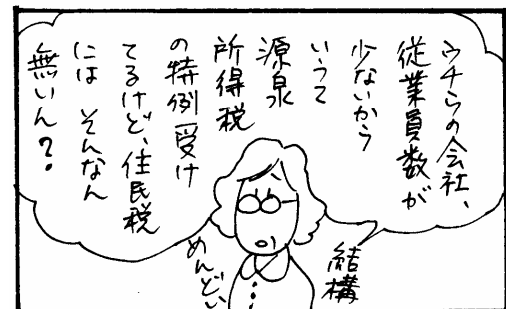 ウチらの会社、
従業員数が
少ないから
いうて
源泉
所得税
の特例受け
てるけど、住民税
には そんなん
無いん?
結構
めんどい